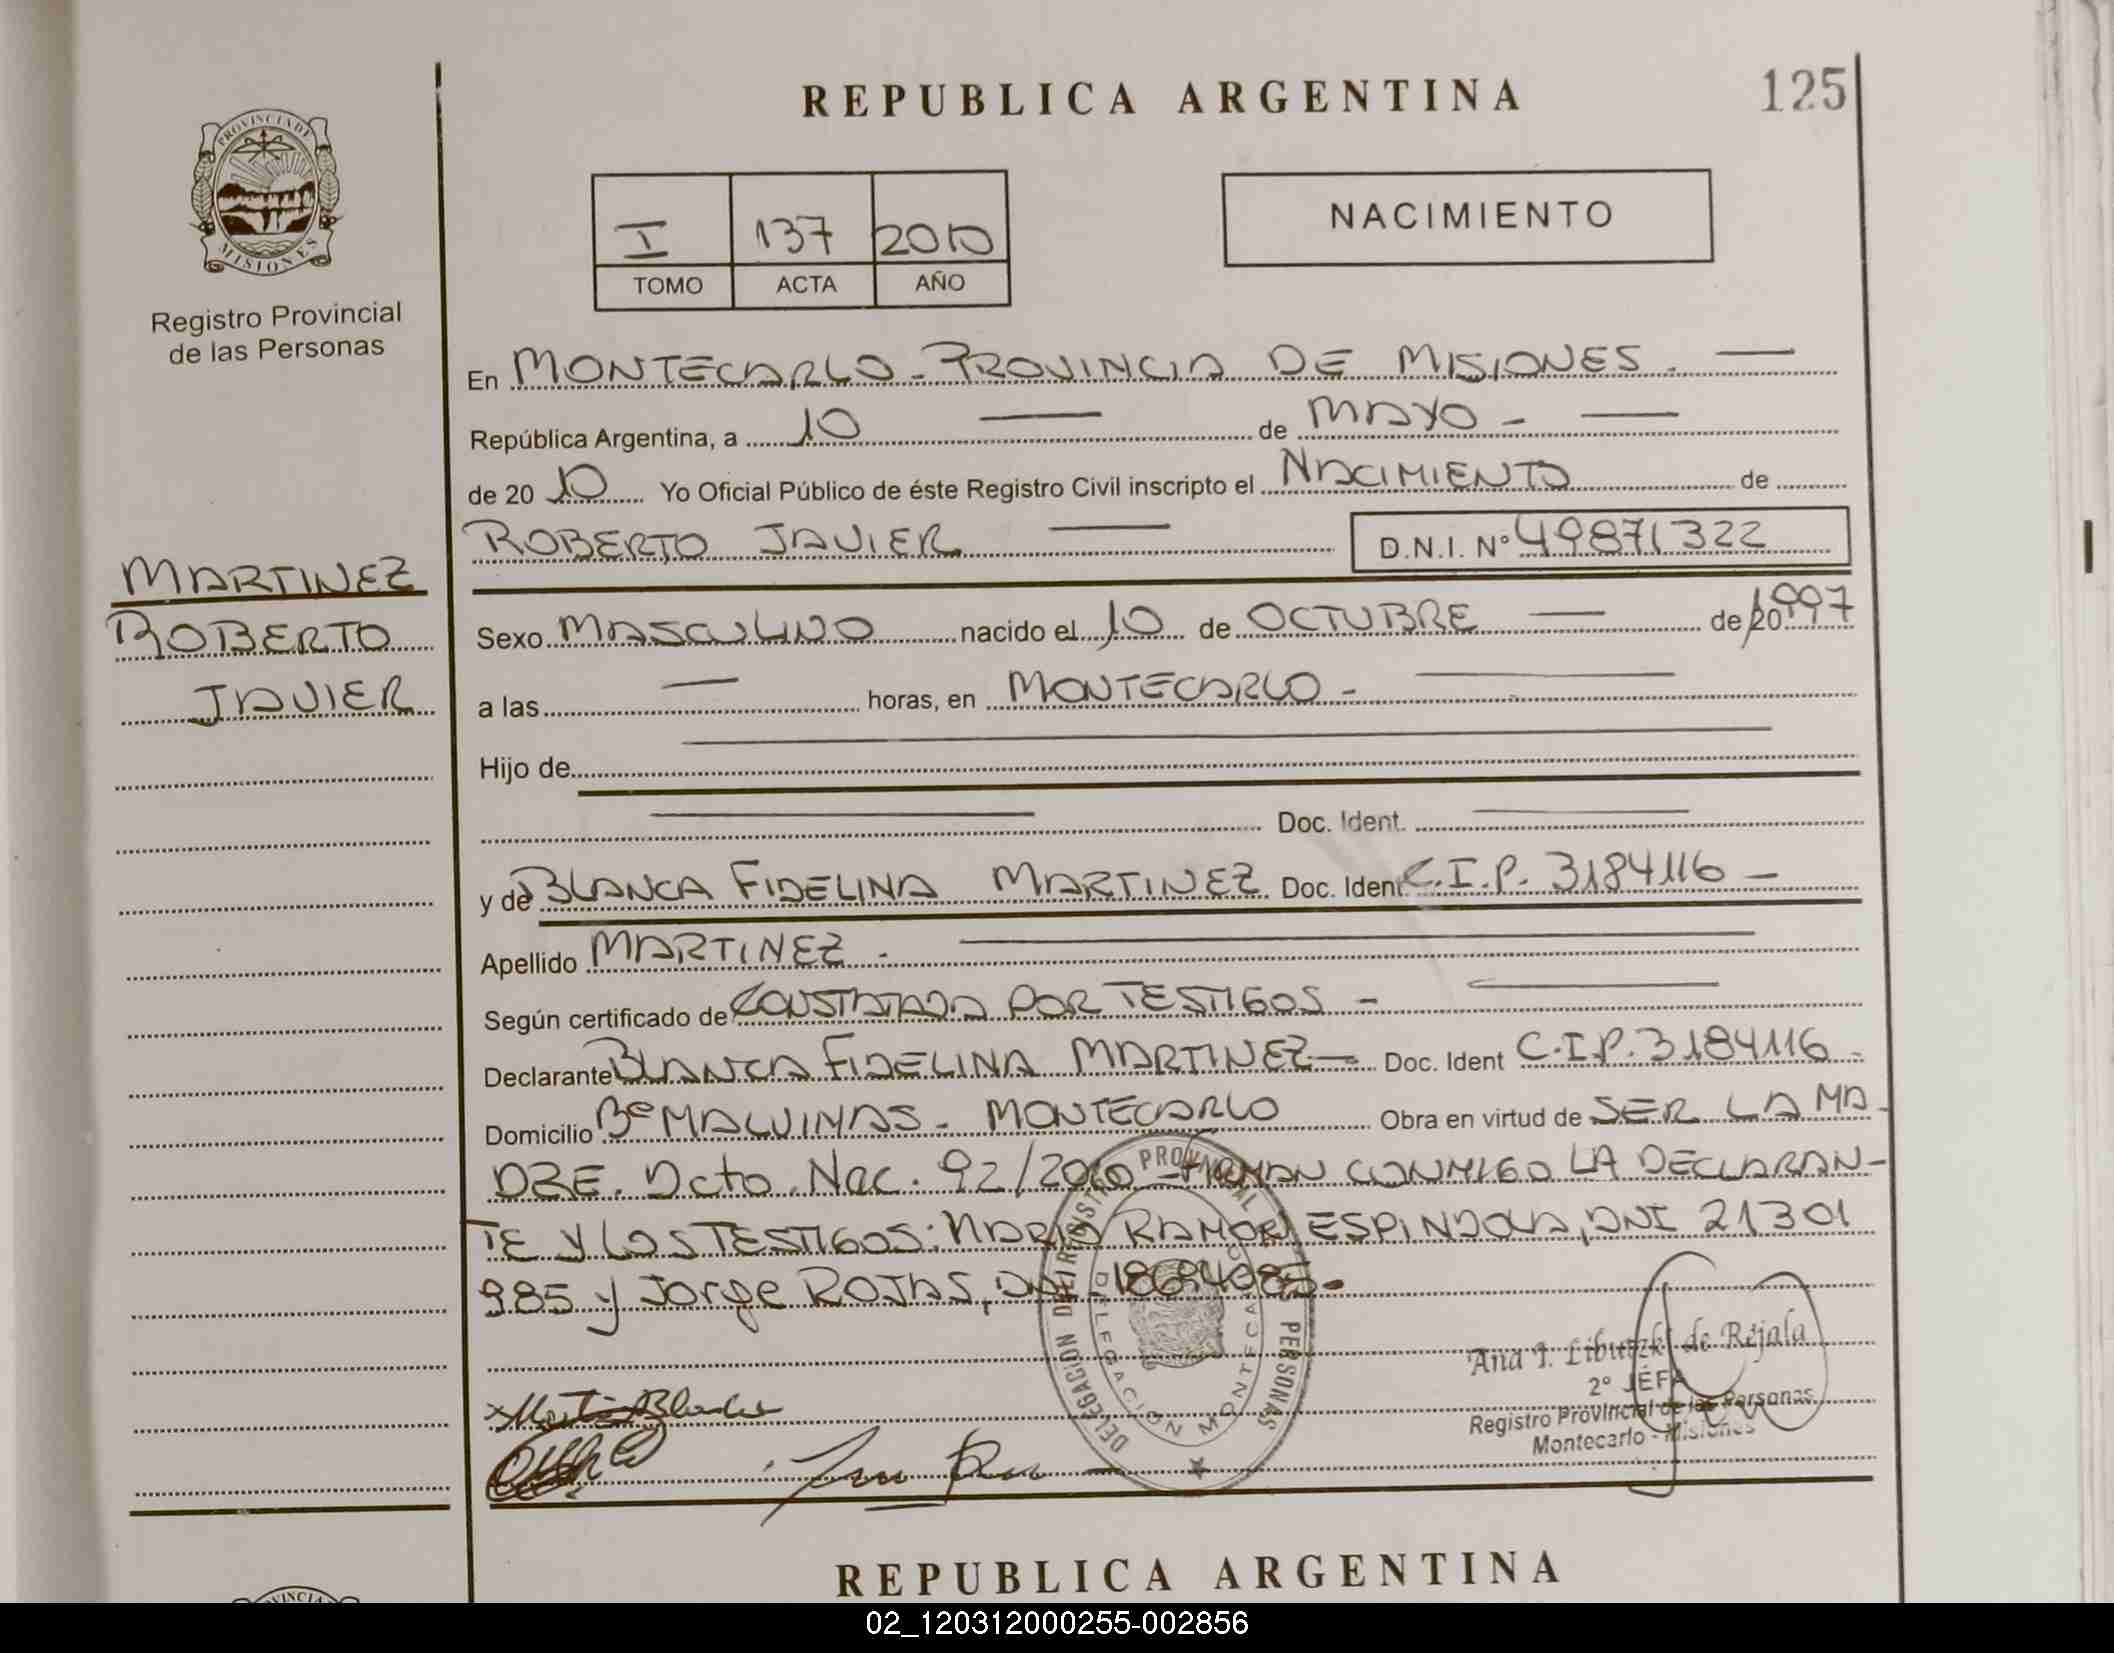 REPUBLICA ARGENTINA
125
PROVINCIA DE MISIONES
Registro Provincial
de las Personas
I 137 2010
TOMO ACTA AÑO
NACIMIENTO
En MONTECARLO - PROVINCIA DE MISIONES. —
República Argentina, a 10 — de MAYO - —
de 20 10 Yo Oficial Público de éste Registro Civil inscripto el NACIMIENTO de
ROBERTO JAVIER — D.N.I. Nº 49871322
MARTINEZ
ROBERTO
JAVIER
Sexo MASCULINO nacido el 10 de OCTUBRE — de 20 1997
a las — horas, en MONTECARLO - —
Hijo de —
— Doc. Ident. —
y de BLANCA FIDELINA MARTINEZ Doc. Ident C.I.P. 3184116 -
Apellido MARTINEZ - —
Según certificado de CONSTATADA POR TESTIGOS - —
Declarante BLANCA FIDELINA MARTINEZ — Doc. Ident C.I.P. 3184116 -
Domicilio Bº MALVINAS - MONTECARLO Obra en virtud de SER LA MA-
DRE. Dcto. Nac. 92/2010 - FIRMAN CONMIGO LA DECLARAN-
TE Y LOS TESTIGOS: MARIO RAMON ESPINDOLA, DNI 21301
985 y Jorge ROJAS, DNI 18694085-
DELEGACION DEL REGISTRO PROVINCIAL PERSONAS
DELEGACION MONTECARLO
Ana I. Libutzki de Rejala
2º JEFA
Registro Provincial de las Personas
Montecarlo - Misiones
REPUBLICA ARGENTINA
02_120312000255-002856